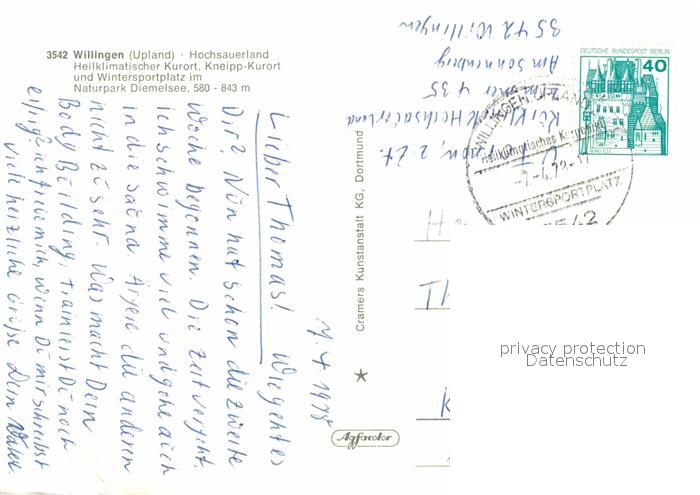 3542 Willingen (Upland) · Hochsauerland
Heilklimatischer Kurort, Kneipp-Kurort
und Wintersportplatz im
Naturpark Diemelsee, 580 - 843 m
7.4.1978
Lieber Thomas! Wie geht es
Dir? Nun hat schon die zweite
Woche begonnen. Die Zeit vergeht.
Ich schwimme viel und gehe auch
in die Sauna. Ärgere die anderen
nicht zu sehr. Was macht Dein
Body Building, trainierst Du noch
eifrig? Ich freue mich, wenn Du mir schreibst
Viele herzliche Grüße Dein
Cramers Kunstanstalt KG, Dortmund
Agfacolor
z. Zt.
Klinik Hochsauerland
Zimmer 435
Am Sonnenberg
3542 Willingen
DEUTSCHE BUNDESPOST BERLIN
40
BURG ELTZ
WILLINGEN, UPLAND
Heilklimatisches Kneippbad
WINTERSPORTPLATZ
3542
H
II
K
privacy protection
Datenschutz